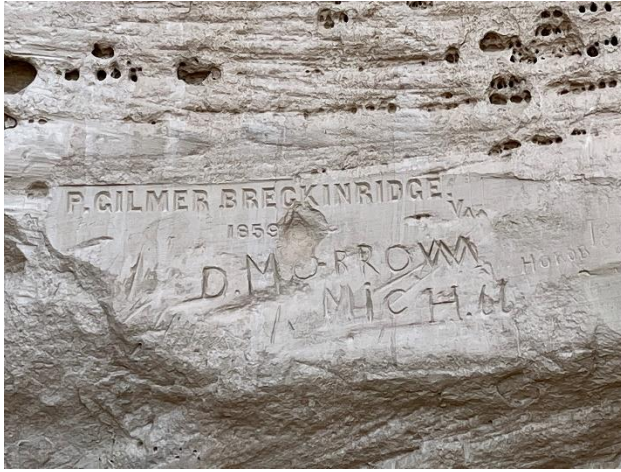 P. GILMER BRECKINRIDGE.
Van
1859
D. MORROW
MICH.